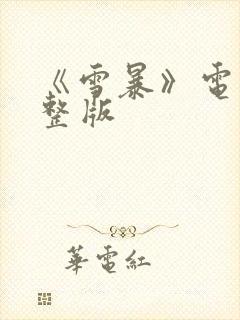 《雪暴》電
整版
華電紅